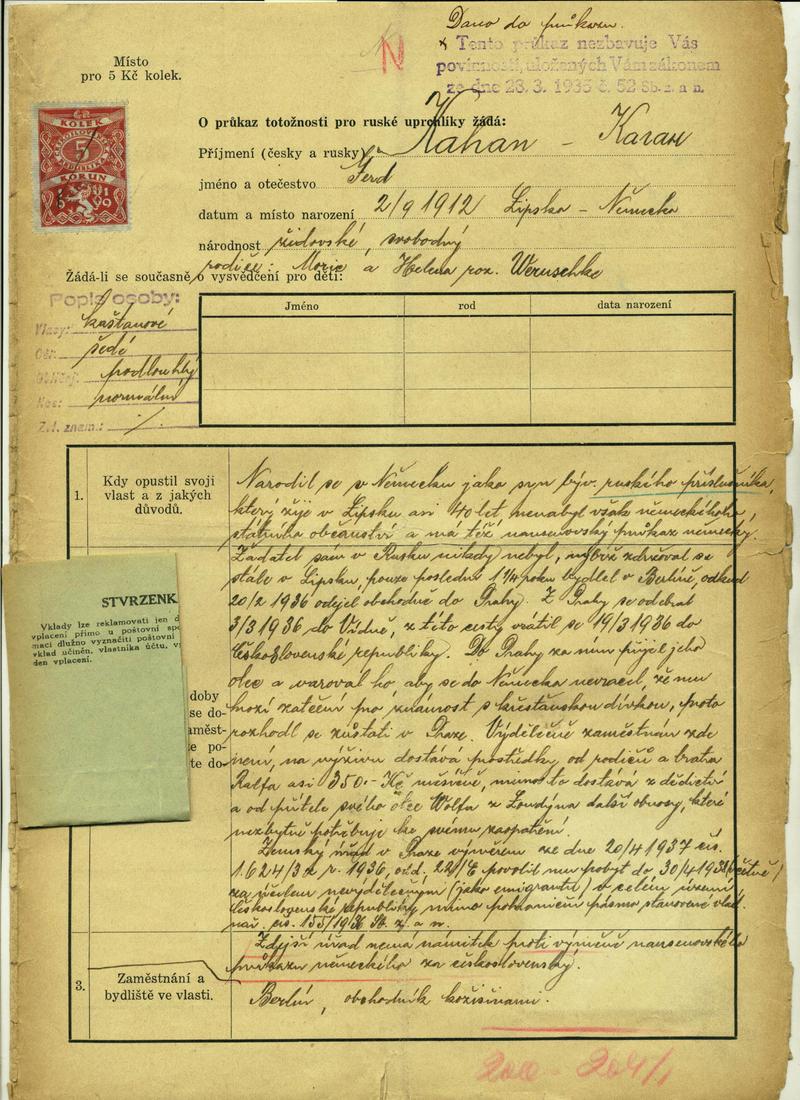 Dáno do průkazu.
N
Místo
pro 5 Kč kolek.
Tento průkaz nezbavuje Vás
povinností, uložených Vám zákonem
ze dne 28. 3. 1935 č. 52 Sb. z. a n.
KOLEK
5
KORUN
O průkaz totožnosti pro ruské uprchlíky žádá:
Příjmení (česky a rusky) Kahan – Каган
jméno a otečestvo Gerd
datum a místo narození 2/9 1912 Lipsko – Německo
národnost židovské, svobodný
rodiče: Moric a Helena roz. Weruschke
Žádá-li se současně o vysvědčení pro děti:
Popis osoby:
Vlasy: kaštanové
Oči: šedé
Obličej: podlouhlý
Nos: normální
Zvl. znam.: /.
Jméno rod data narození
1. Kdy opustil svoji
vlast a z jakých
důvodů.
Narodil se v Německu jako syn býv. ruského příslušníka,
který žije v Lipsku asi 40 let, nenabyl však německého
státního občanství a má též nansenovský průkaz německý.
Žadatel sám v Rusku nikdy nebyl, nýbrž zdržoval se
stále v Lipsku, pouze poslední 1 1/4 roku bydlel v Berlíně, odkud
20/2 1936 odejel obchodně do Prahy. Z Prahy se odebral
3/3 1936 do Vídně, z této cesty vrátil se 19/3 1936 do
Československé republiky. Do Prahy za ním přijel jeho
otec a varoval ho, aby se do Německa nevracel, že mu
hrozí zatčení pro známost s křesťanskou dívkou, proto
rozhodl se zůstati v Praze. Výdělečně zaměstnán zde
není, na výživu dostává prostředky od rodičů a bratra
Ralfa asi 350.- Kč měsíčně, mimo to dostává z dědictví
a od přítele svého otce Wolfa z Londýna další obnosy, které
nezbytně potřebuje ke svému zaopatření.
Zemský úřad v Praze výměrem ze dne 20/4 1937 čís.
1624/3 z r. 1936, odd. 22/E povolil mu pobyt do 30/4 1938 (včetně)
za účelem nevýdělečným (jako emigrantu) v celém území
Československé republiky mimo pohraniční pásmo stanovené vlád.
nař. čís. 155/1936 Sb. z. a n.
STVRZENK
Vklady lze reklamovati jen d
vyplacení přímo u poštovní spo
maci dlužno vyznačiti poštovní
vklad učiněn, vlastníka účtu, v
den vplacení.
doby
se do-
aměst-
te po-
te do-
Zdejší úřad nemá námitek proti výměně nansenovského
průkazu německého za československý.
3. Zaměstnání a
bydliště ve vlasti.
Berlín, obchodník kožišinami.